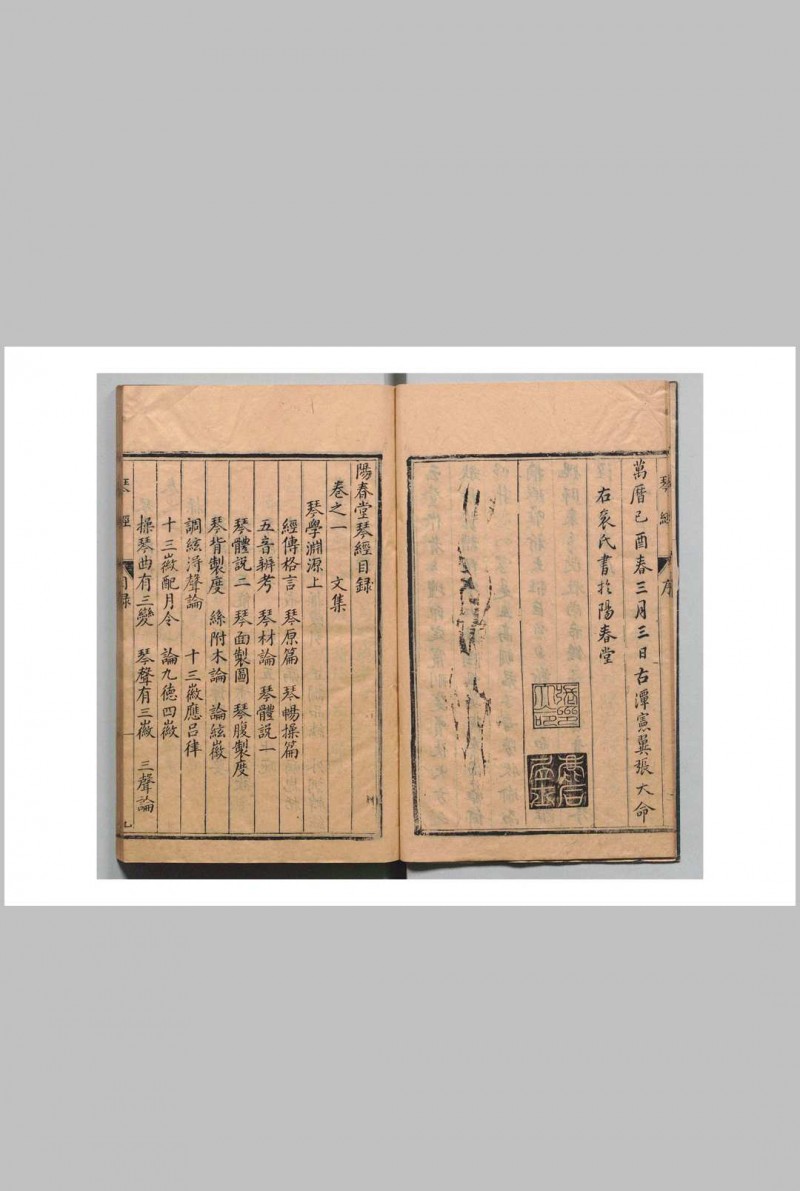 琴經
序
萬曆己酉春三月三日古潭憲翼張大命
右袞氏書於陽春堂
陽春堂琴經目録
卷之一 文集
琴學淵源上
經傳格言 琴原篇 琴暢操篇
五音辨考 琴材論 琴體説一
琴體説二 琴面製圖 琴腹製度
琴背製度 絲附木論 論絃徽
調絃淂聲論 十三徽應吕律
十三徽配月令 論九德四徽
操琴曲有三變 琴聲有三徽 三聲論
琴經
目録